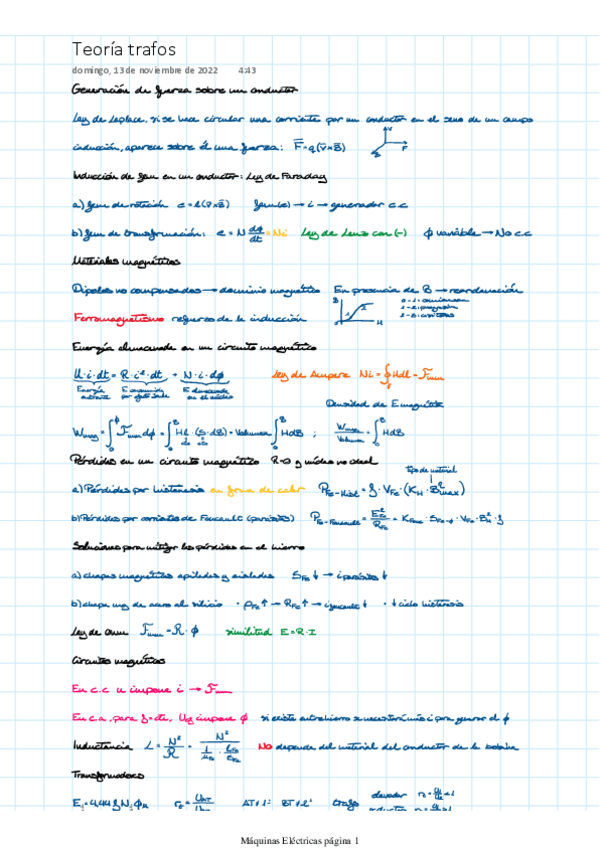 Teoría trafos
domingo, 13 de noviembre de 2022 4:43
Generación de fuerza sobre un conductor
Ley de Laplace, si se hace circular una corriente por un conductor en el seno de un campo
inducción, aparece sobre él una fuerza: F = q(v×B)
Inducción de fem en un conductor: Ley de Faraday
a) fem de rotación e = l(v×B) fem(e) → i → generador c.c
b) fem de transformación: e = N dφ/dt = Ley de Lenz con (-) φ variable → No c.c
Materiales magnéticos
Dipolos no compensados → dominio magnético En presencia de B → reordenación
B H
Ferromagnetismo refuerzo de la inducción
Energía almacenada en un circuito magnético
U·i·dt = R·i²·dt + N·i·dφ Ley de Ampere Ni = ∮ Hdl = Fmm
Energía E consumida E almacenada
en el núcleo
Densidad de E magnética
Wmag = ∫ Fmm dφ = ∫ Hl·(S·dB) = Volumen ∫ HdB ; Wmag/Volumen = ∫ HdB
Pérdidas en un circuito magnético R=0 y núcleo no ideal
tipo de material
a) Pérdidas por histéresis en forma de calor P_Fe-Hist = f·V_Fe·(K_H·B²max)
b) Pérdidas por corrientes de Foucault (parásitas)
Soluciones para mitigar las pérdidas en el hierro
a) chapas magnéticas apiladas y aisladas S_Fe↓ → i parásitas ↓
b) chapa mag de acero al silicio · ρ_Fe↑ → R_Fe↑ → i foucault ↓ · ↓ ciclo histéresis
Ley de Ohm Fmm = R·φ similitud E = R·I
Circuitos magnéticos
En c.c se impone i → Fmm
En c.a, para f=cte, Ug impone φ si existe entrehierro se necesitará más i para generar el φ
Inductancia L = N²/R = No depende del material del conductor de la bobina
Transformadores
E₁=4,44 f N₁ φm
Máquinas Eléctricas página 1